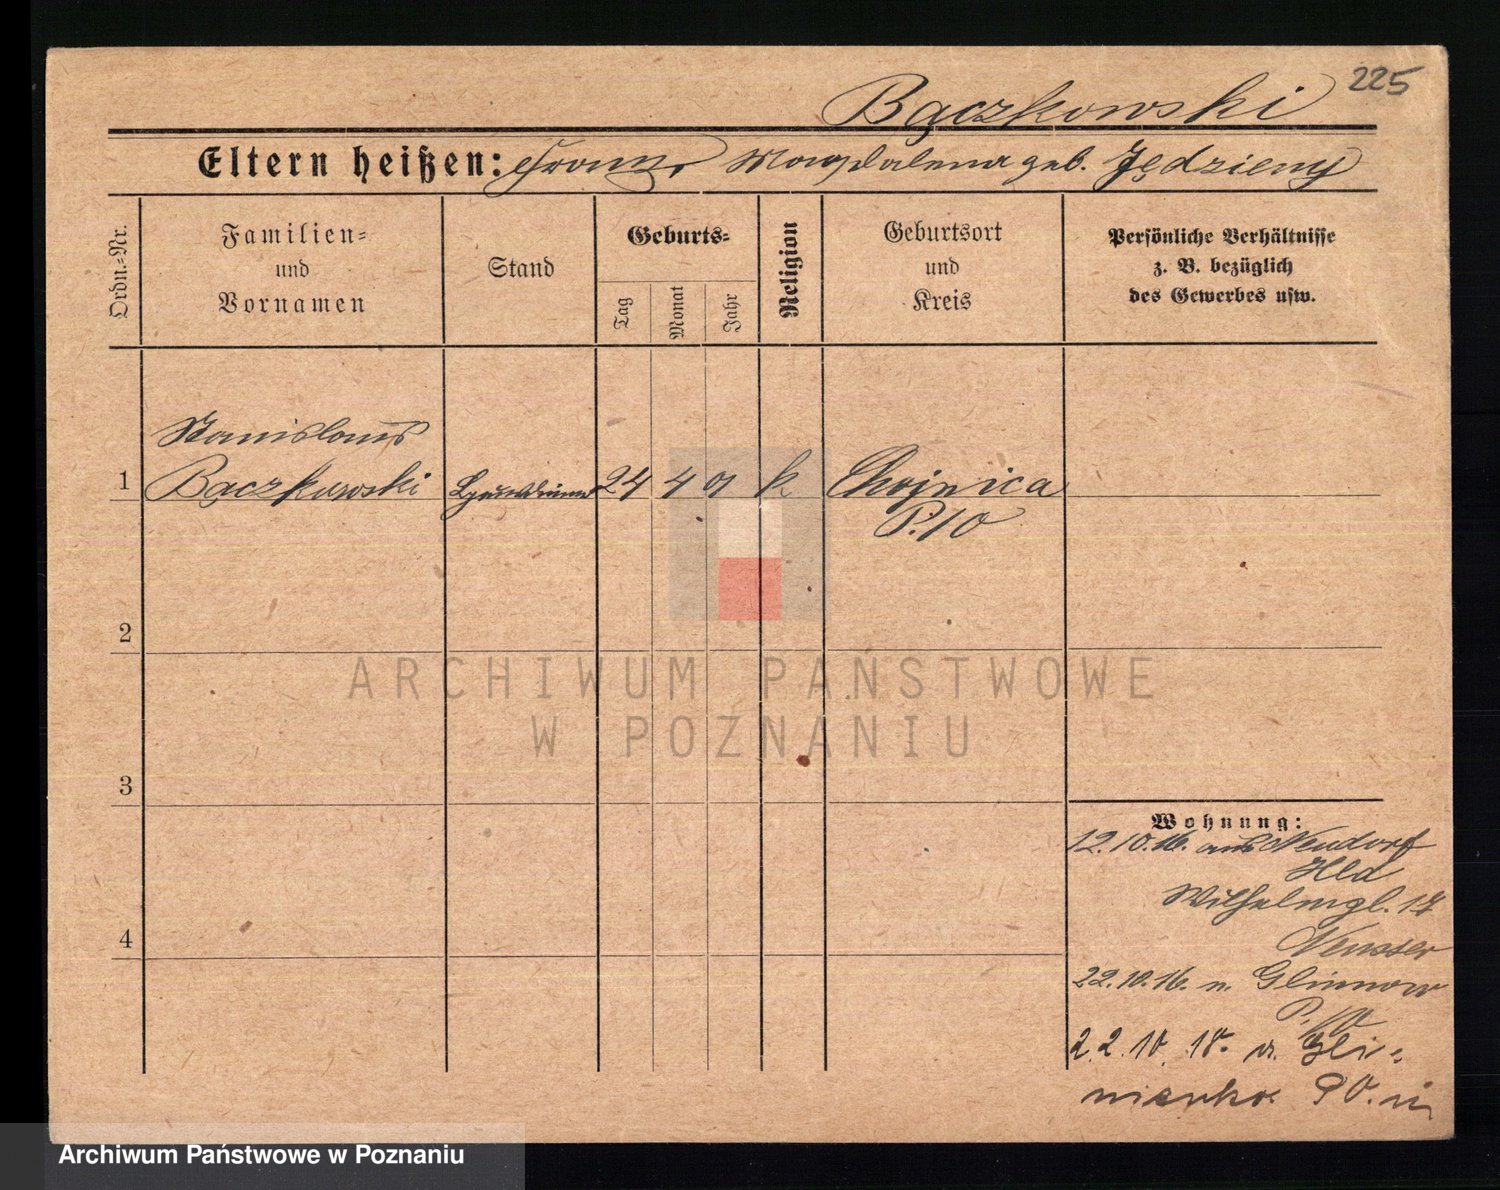 225
Bączkowski
Eltern heißen: Franz, Magdalena geb. Jędzieny
Ordn.-Nr.
Familien-
und
Vornamen
Stand
Geburts-
Tag
Monat
Jahr
Religion
Geburtsort
und
Kreis
Persönliche Verhältnisse
z. B. bezüglich
des Gewerbes usw.
Stanislaus
1 Bączkowski 24 4 k Chojnica
P./O
2
3
4
Wohnung:
12.10.16. aus Neudorf
Hld
Wilhelmpl. 17
22.10.16. n. Glinnow
P./O
2.2.18. Gli-
nienko P.O.
ARCHIWUM PAŃSTWOWE
W POZNANIU
Archiwum Państwowe w Poznaniu